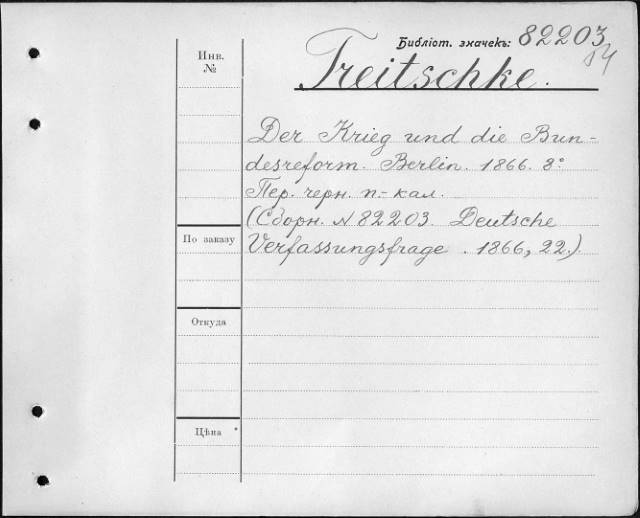 Библіот. значекъ: 82203
Инв.
№
Treitschke.
Der Krieg und die Bun-
desreform. Berlin. 1866. 8°
Пер. черн. п.-кал.
(Сборн. № 82203 Deutsche
Verfassungsfrage. 1866, 22.)
По заказу
Откуда
Цѣна